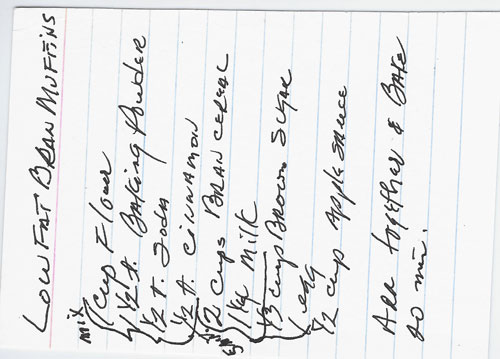 LOW FAT BRAN MUFFINS
Mix
1 cup Flour
1 1/2 t. BAKING Powder
1/2 t. Soda
1/2 t. CINNAMON
2 cups BRAN CEREAL
1 1/4 Milk
1/3 cup BROWN SUGAR
1 egg
1/2 cup Apple sauce
Add together & BAKE
20 min.